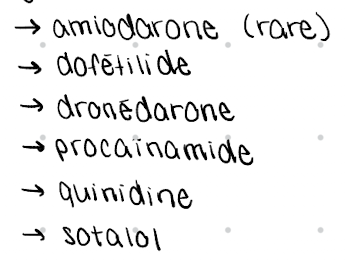 → amiodarone (rare)
→ dofetilide
→ dronedarone
→ procainamide
→ quinidine
→ sotalol